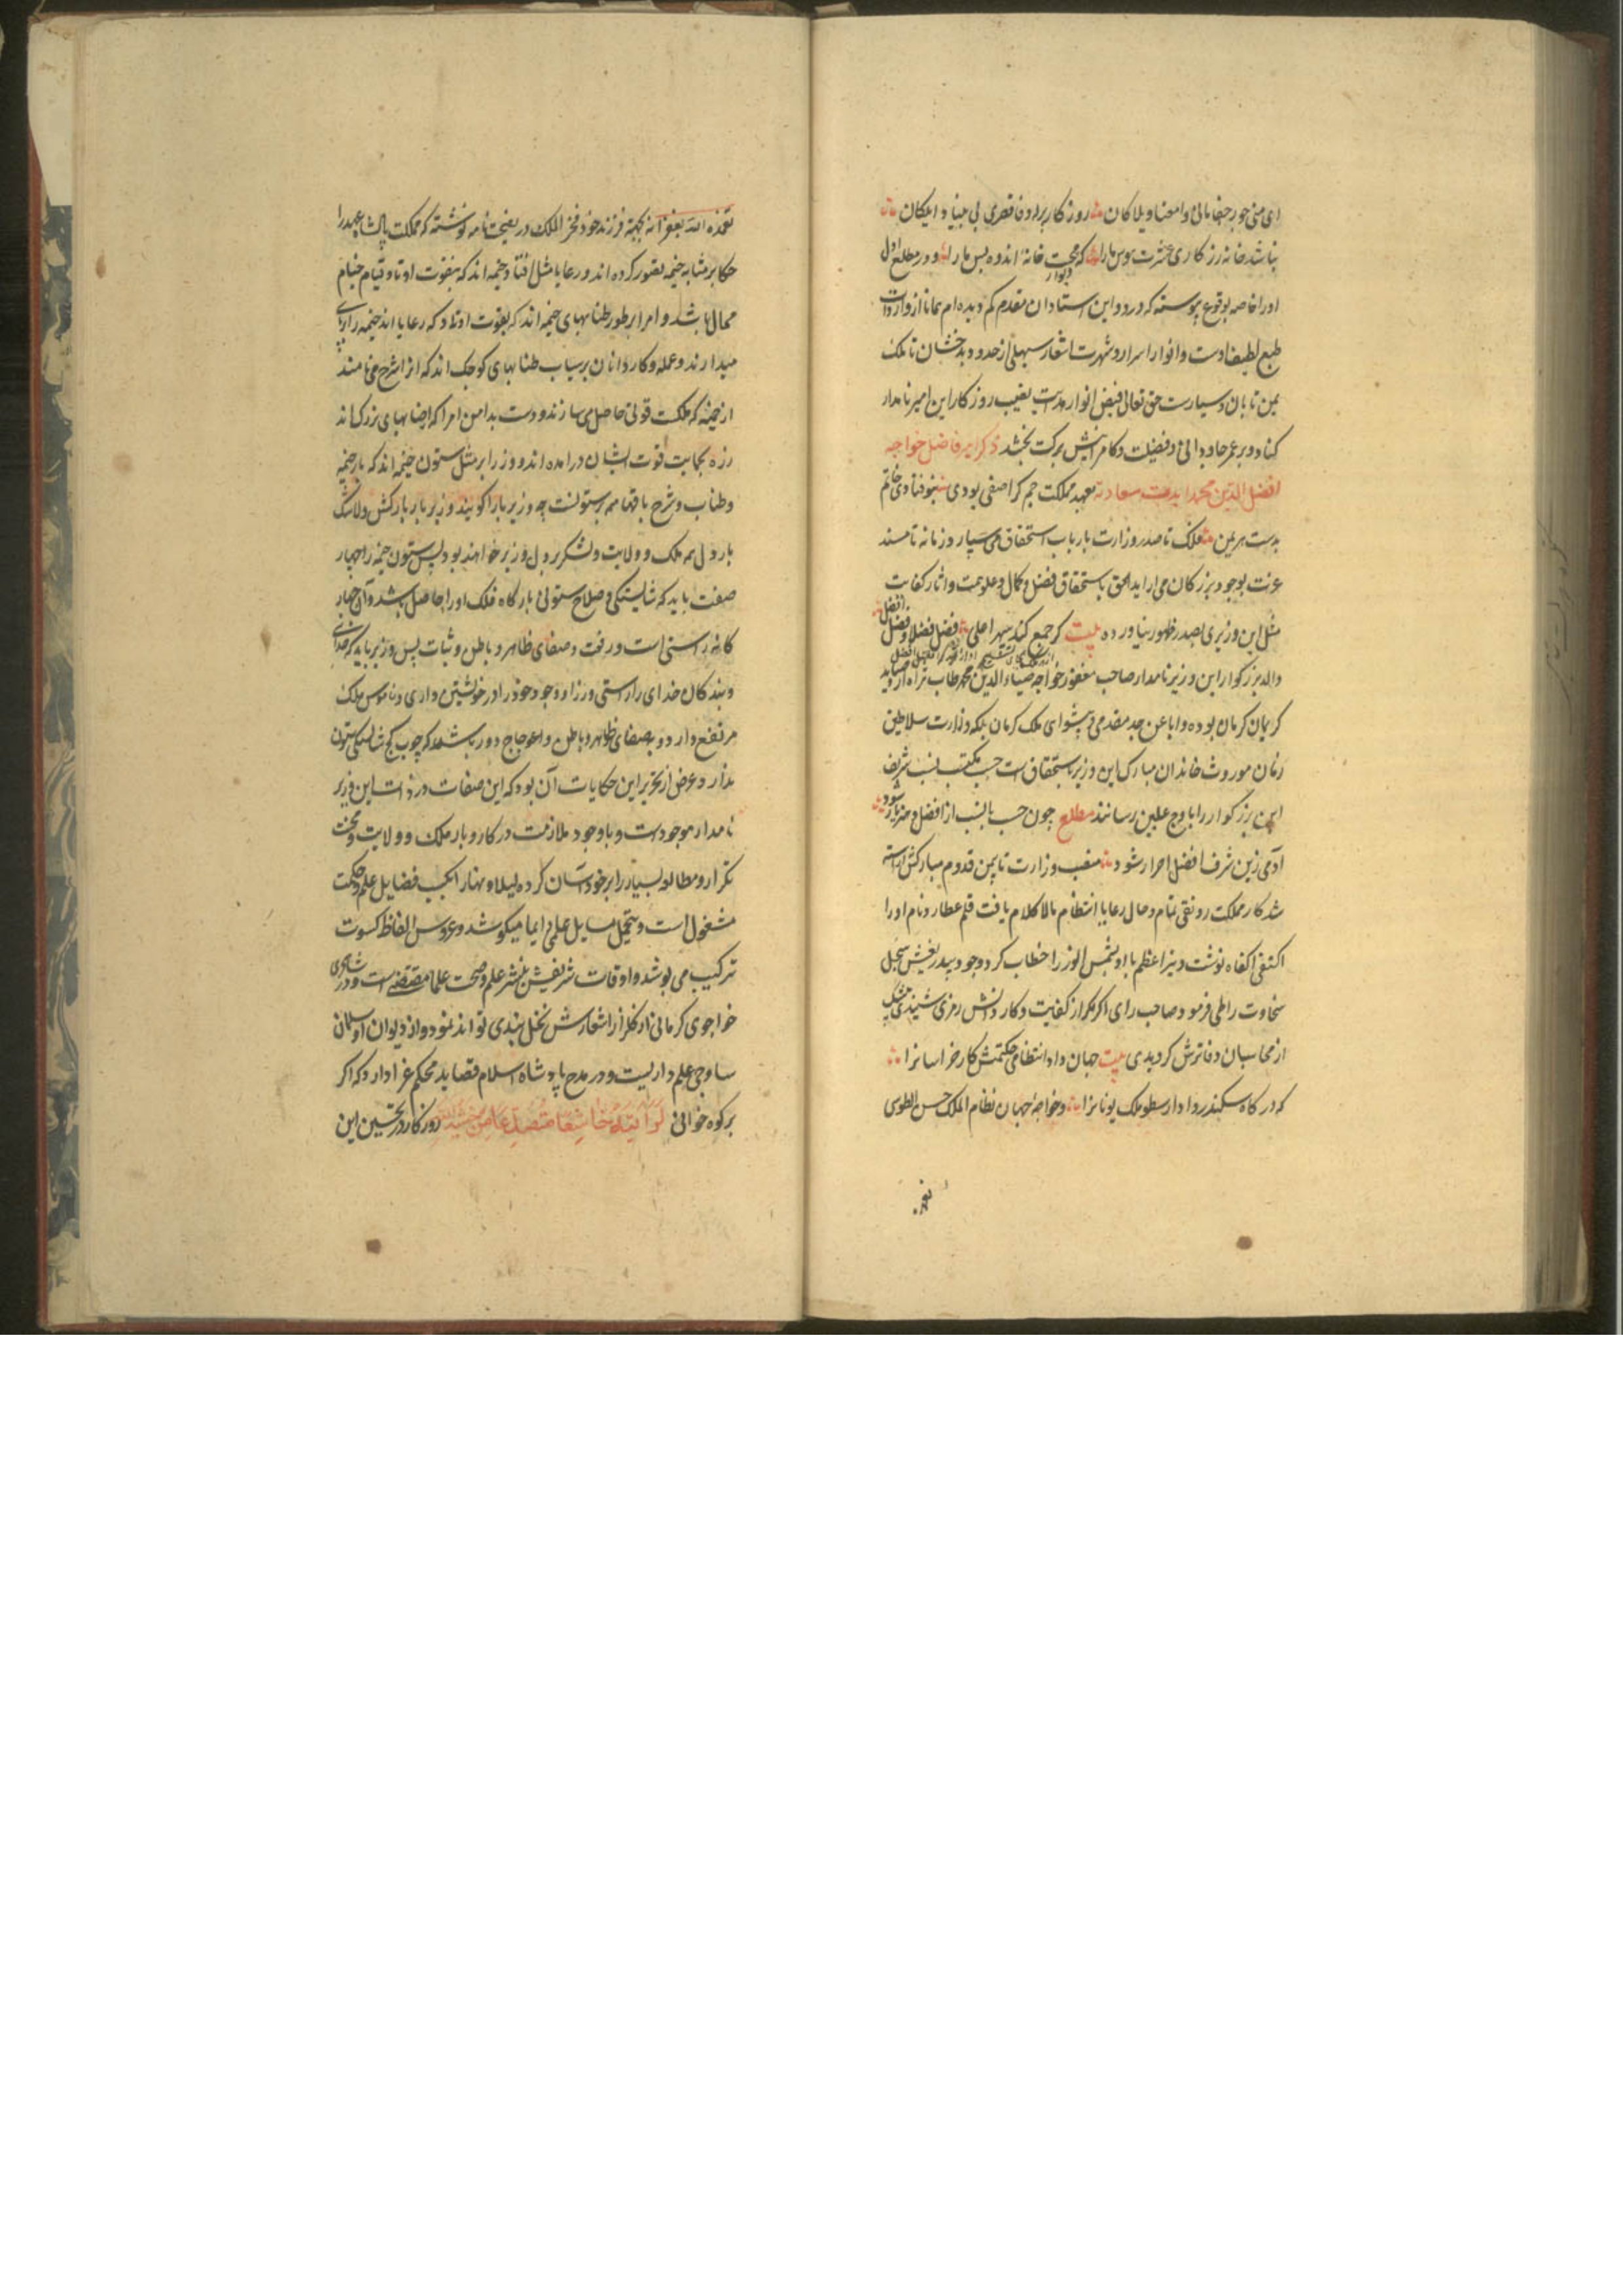 نباشد خانه زرکاری عشرت هوس ما را که محنت خانهٔ اندوه بس ما را و در مطلع اول
او را خاصه بوقوع پیوسته که در و این استادان مقدم کم دیده‌ام همانا از واردات
طبع لطیف اوست و انوار اسرار و شهرت اشعار سهیلی از حدود بدخشان تا ملک
یمن تابان و سیارست حق تعالی فیض انوار نصیب روزکار این امیر نامدار
کناد و بر عمر جاودانی و فضیلت و کامرانیش برکت بخشد ذکر امیر فاضل خواجه
افضل الدین محمد ابدت سعادته بعهد مملکت جم کر اصفی بودی نیوفتادی خاتم
بدست هرمن فلک تا صدر وزارت بارباب استحقاق می‌سپارد و زمانه تا مسند
عزت بوجود بزرکان می‌اراید الحق باستحقاق فضل و کمال و علو همت و اثار کفایت
مثل این وزیری بصدر ظهور نیاورده بیت کر جمع کند سپهر اعلی فضل فضلا و فضل افضل
والد بزرکوار این وزیر نامدار صاحب مغفور خواجه ضیاء الدین محمد طاب ثراه از
کریمان کرمان بوده و ابا عن جد مقدم و پیشوای ملک کرمان بلکه وزارت سلاطین
زمان موروث خاندان مبارک این وزیر باستحقاق است حسب مکتسب نسب شریف
این بزرکوار را باوج علیین رسانند مطلع چون حسب با نسب از افضل و هنر یار شود
آدمی زین شرف افضل احرار شود منصب وزارت تا بیمن قدوم مبارکش اراسته
شد کار مملکت رونقی تمام و حال رعایا انتظام مالاکلام یافت قلم عطارد نام او را
اکتفی اکفاه نوشت و نیر اعظم با او شمس الوزرا خطاب کرد وجود بیدریغیش سجل
سخاوت را طی فرمود صاحب رای اکر مکرر از کفایت و کار دانش رمزی شنیدی
از محاسبان دفاترش کردیدی بیت جهان داد انتظامی حکمتش کار خراسانرا
که در کاه سکندر داد ارسطو ملک یونانرا و خواجهٔ جهان نظام الملک حسن الطوسی
تغمده الله بغفرانه بجهة فرزند خود فخر الملک در نصیحت نامه نوشته که مملکت پادشاه عهد را
حکما بر مثابه خیمه تصور کرده‌اند و رعایا مثل اوتاد خیمه‌اند که بی قوت اوتاد قیام خیام
محال باشد و امرا بر طور طنابهای خیمه‌اند که بقوت اوتاد که رعایااند خیمه را برپای
میدارند و عمله و کاردانان برسیاب طنابهای کوچک‌اند که انرا شرح می‌نامند
از خیمه که ملکت قوتی حاصل می‌سازند و دست بدامن امرا که طنابهای بزرک‌اند
زده بحمایت قوت ایشان درامده‌اند و وزرا بر مثل ستون خیمه‌اند که بار خیمه
و طناب و شرح باتمامه بر ستونست چه وزیر بار را کویند و وزیر باربارکش و لاشک
بار دل همه ملک و ولایت و لشکر بر دل وزیر خواهد بود پس ستون خیمه را چهار
صفت باید که شایستکی و صلاح ستونی بارکاه فلک او را حاصل باشد و آن چهار
کانه راستی است و رفعت و صفای ظاهر و باطن و ثبات پس وزیر باید که خدای
و بندکان خدای را راستی ورزد و وجود خود را در خویشتن داری و ناموس ملک
مرتفع دارد و بصفای ظاهر و باطن و اعوجاج دور باشد که چوب کج شایستکی ستون
ندارد و غرض از تحریر این حکایات آن بود که این صفات در ذات این وزیر
نامدار موجودست و باوجود ملازمت در کار و بار ملک و ولایت و محنت
تکرار و مطالعه بسیار را بر خود آسان کرده لیلا و نهارا بکسب فضایل علم و حکمت
مشغول است و بتحصیل مسایل علمی ایما میکوشد و عروس الفاظ کسوت
ترکیب می‌پوشد و اوقات شریفش بنشر علم و صحبت علما مقتضی است و در شاعری
خواجوی کرمانی از کلزار اشعارش نخل بندی تواند نمود و از دیوان او سلمان
ساوجی علم داریست و در مدح پادشاه اسلام قصاید محکم غرا دارد که اکر
بر کوه خوانی لَرَاَیتَهُ خَاشِعًا مُتَصَدِّعًا مِن خَشیَةِ اللهِ روزکار در تحسین این